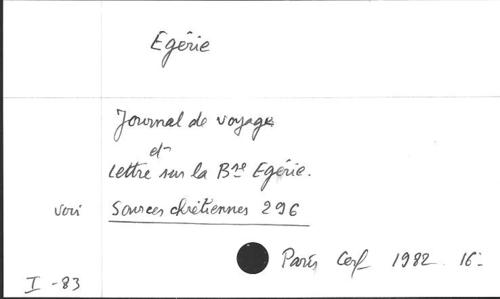 Egérie
Journal de voyage
et
Lettre sur la Bse Egérie.
voir Sources chrétiennes 296
Paris Cerf 1982. 16-
I -83